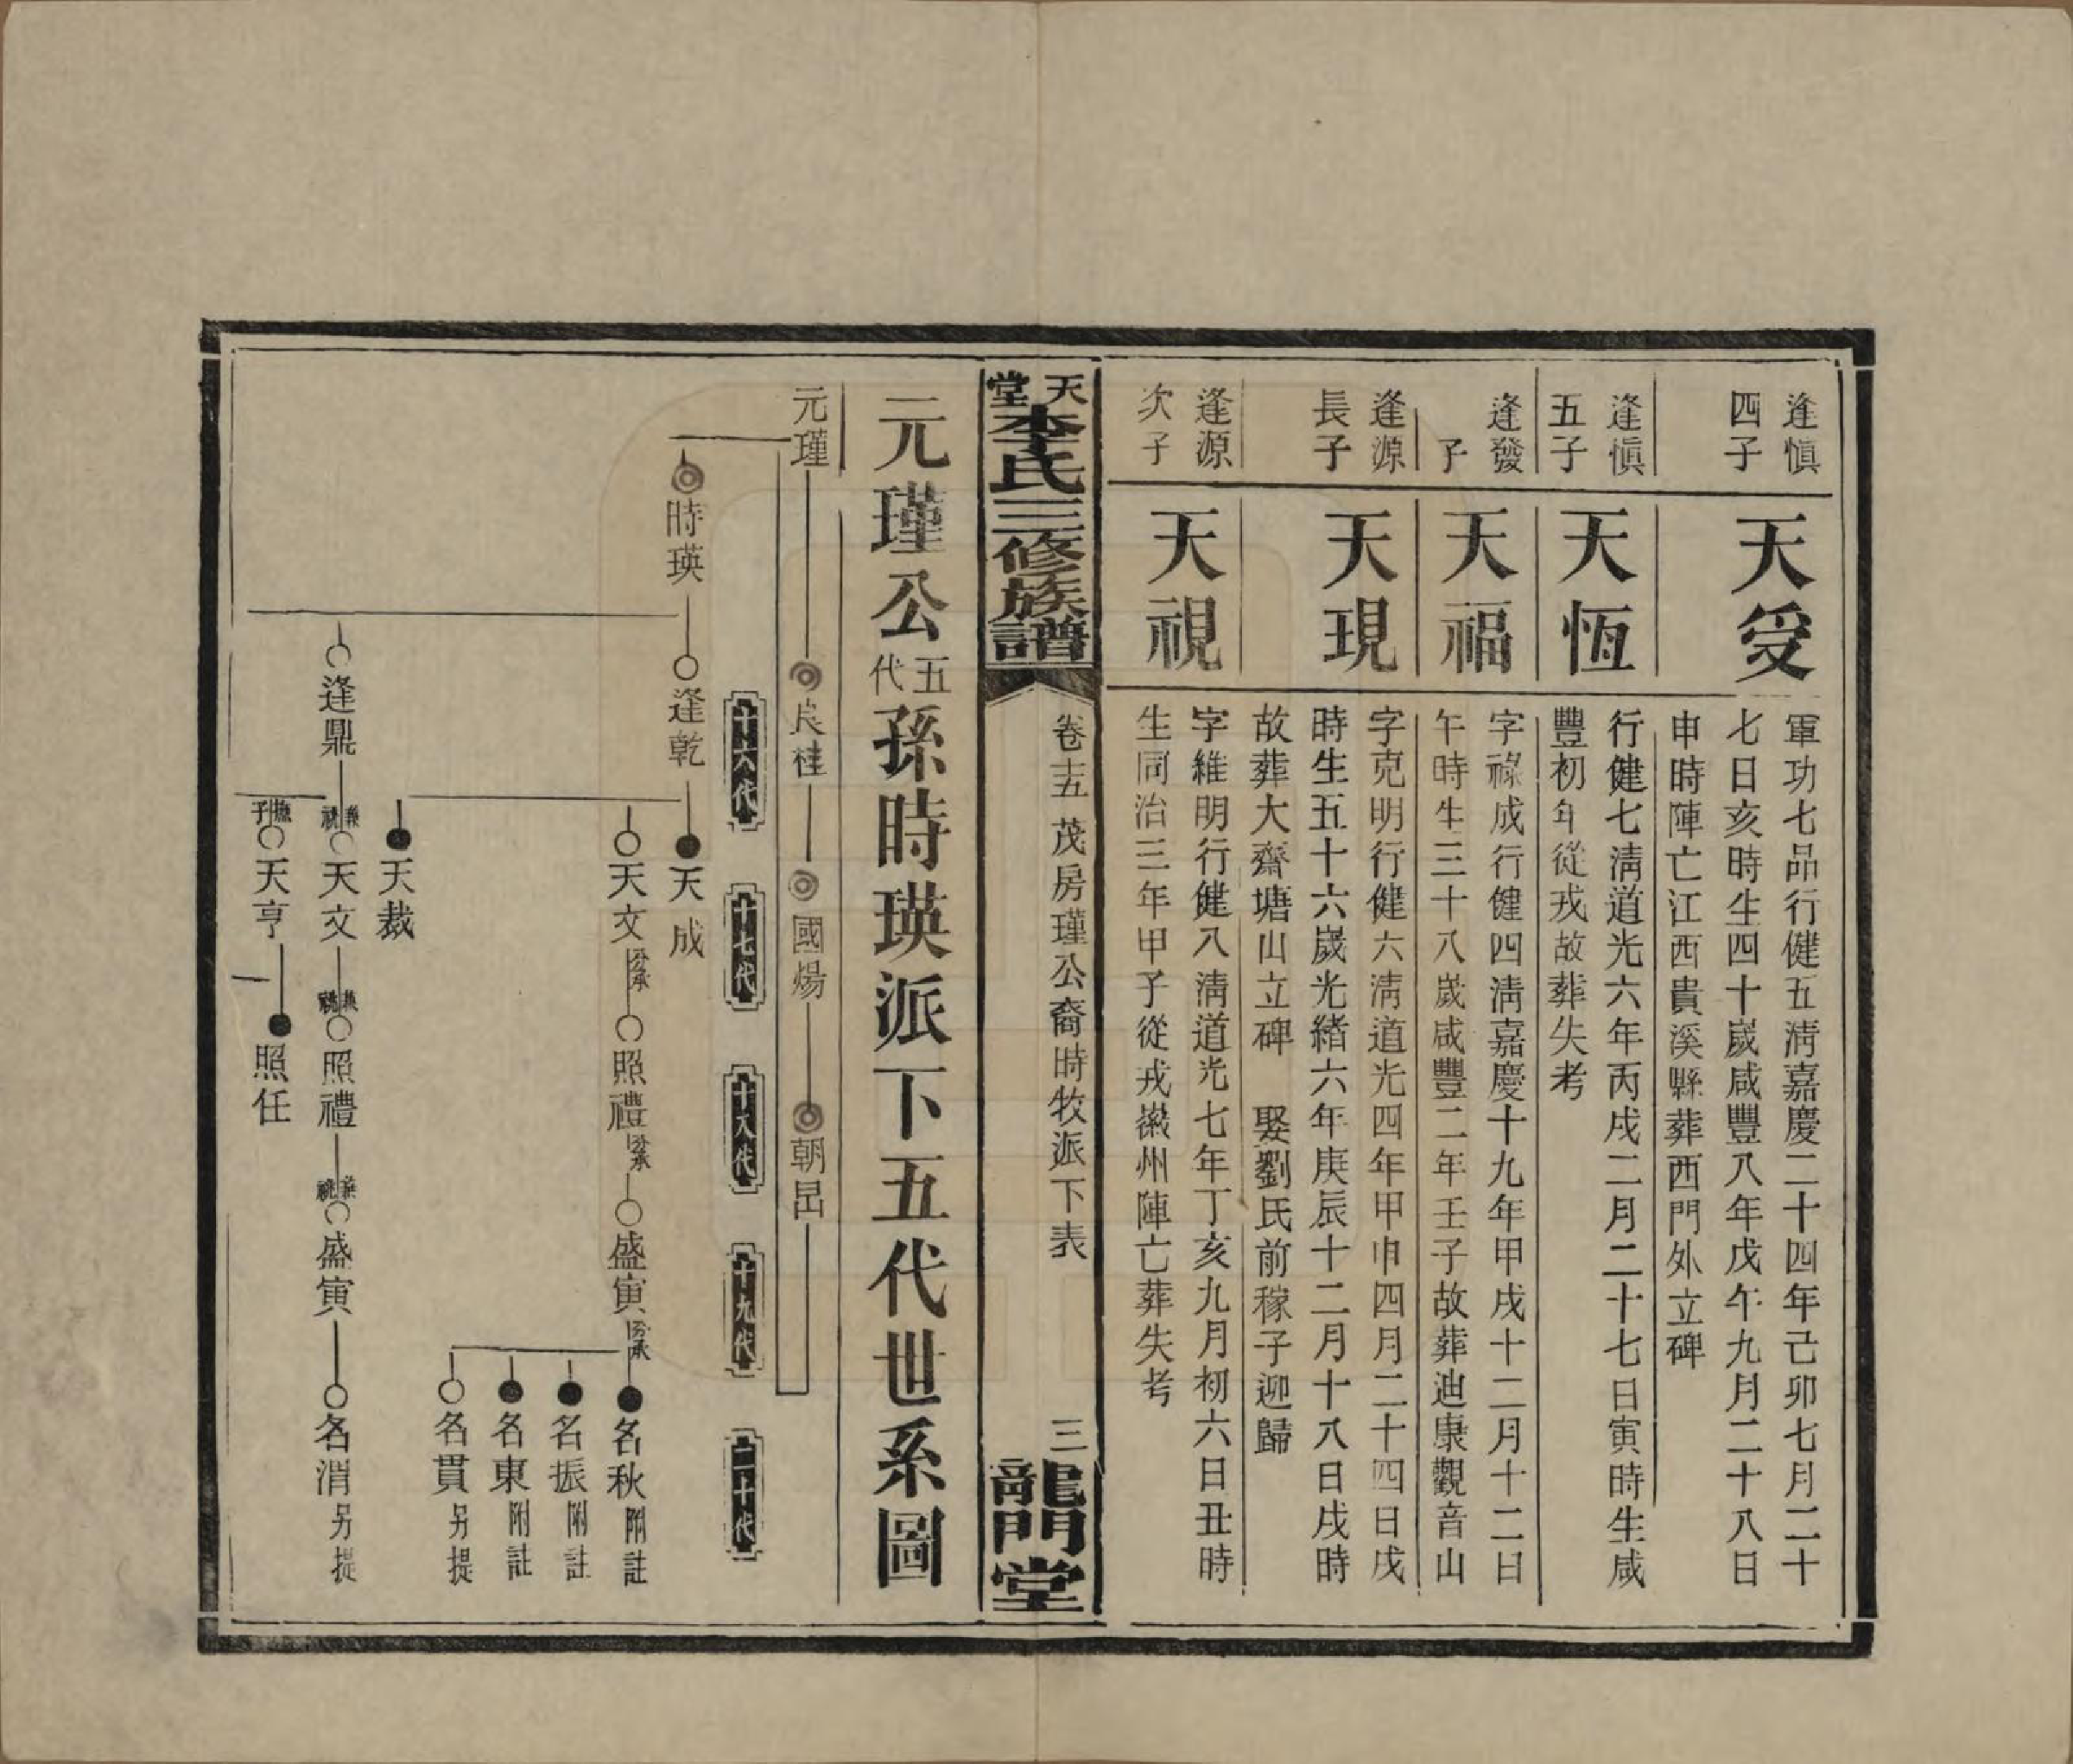 逢慎
四子
天受
軍功七品行健五淸嘉慶二十四年己卯七月二十
七日亥時生四十歲咸豐八年戊午九月二十八日
申時陣亡江西貴溪縣葬西門外立碑
逢慎
五子
天恆
行健七淸道光六年丙戌二月二十七日寅時生咸
豐初年從戎故葬失考
逢發
子
天福
字祿成行健四淸嘉慶十九年甲戌十二月十二日
午時生三十八歲咸豐二年壬子故葬迪康觀音山
逢源
長子
天現
字克明行健六淸道光四年甲申四月二十四日戌
時生五十六歲光緒六年庚辰十二月十八日戌時
故葬大齋塘山立碑 娶劉氏前稼子迎歸
逢源
次子
天視
字維明行健八淸道光七年丁亥九月初六日丑時
生同治三年甲子從戎徽州陣亡葬失考
天堂李氏三修族譜
卷十五 茂房瑾公裔時牧派下表
三
龍門堂
元瑾公五代孫時瑛派下五代世系圖
元瑾
良桂
國煬
朝昌
十六代
十七代
十八代
十九代
二十代
時瑛
逢乾
天成
天文
分承
照禮
分承
盛寅
分承
名秋附註
名振附註
名東附註
名貫另提
天裁
逢鼎
兼祧
天文
兼祧
照禮
兼祧
盛寅
名渭另提
撫子
天亨
照任